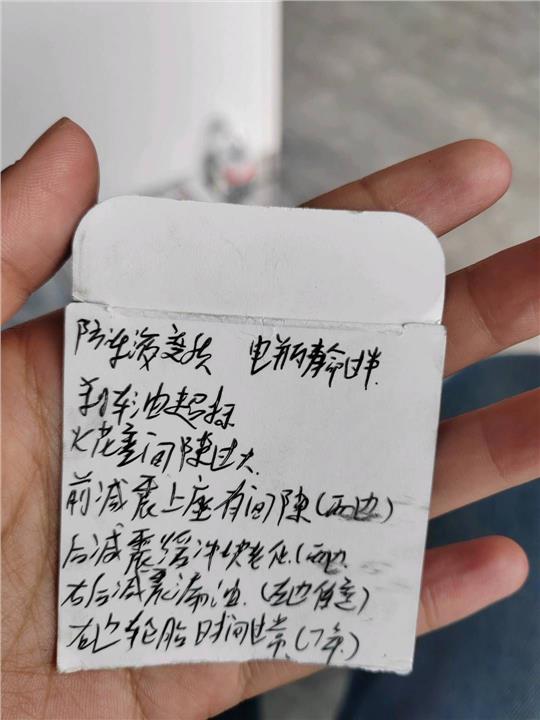 防冻液变质 电瓶寿命过半
刹车油超标
火花塞间隙过大
前减震上座有间隙(两边)
后减震缓冲块老化(两边
右后减震漏油.(左边
右边轮胎时间过常(7年)